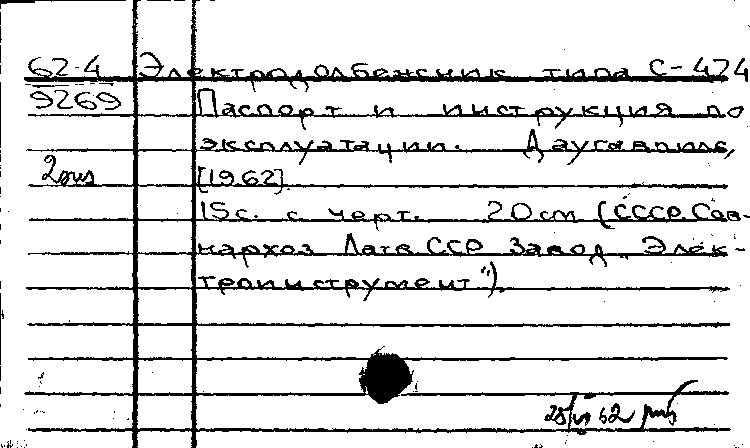 62-4 Электродолбежник типа С-424
9269 Паспорт и инструкция по
эксплуатации. Даугавпилс,
2 экз [1962]
15с. с черт. 20см (СССР. Сов-
нархоз Латв. ССР. Завод „Элек-
троинструмент").
28/VI 62